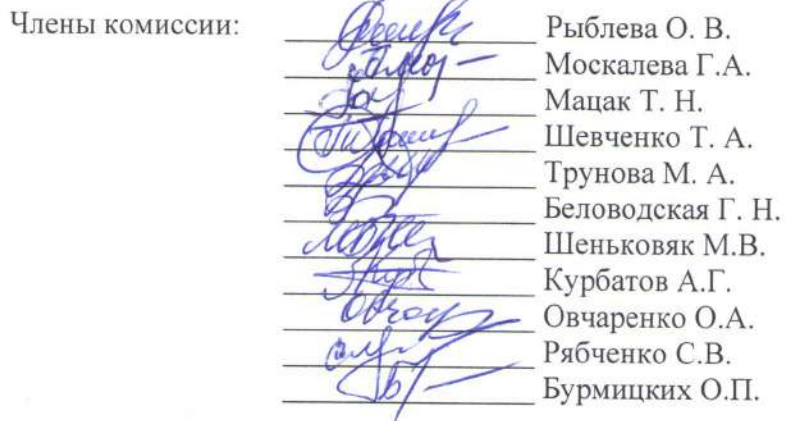 Члены комиссии: Рыблева О. В.
Москалева Г.А.
Мацак Т. Н.
Шевченко Т. А.
Трунова М. А.
Беловодская Г. Н.
Шеньковяк М.В.
Курбатов А.Г.
Овчаренко О.А.
Рябченко С.В.
Бурмицких О.П.